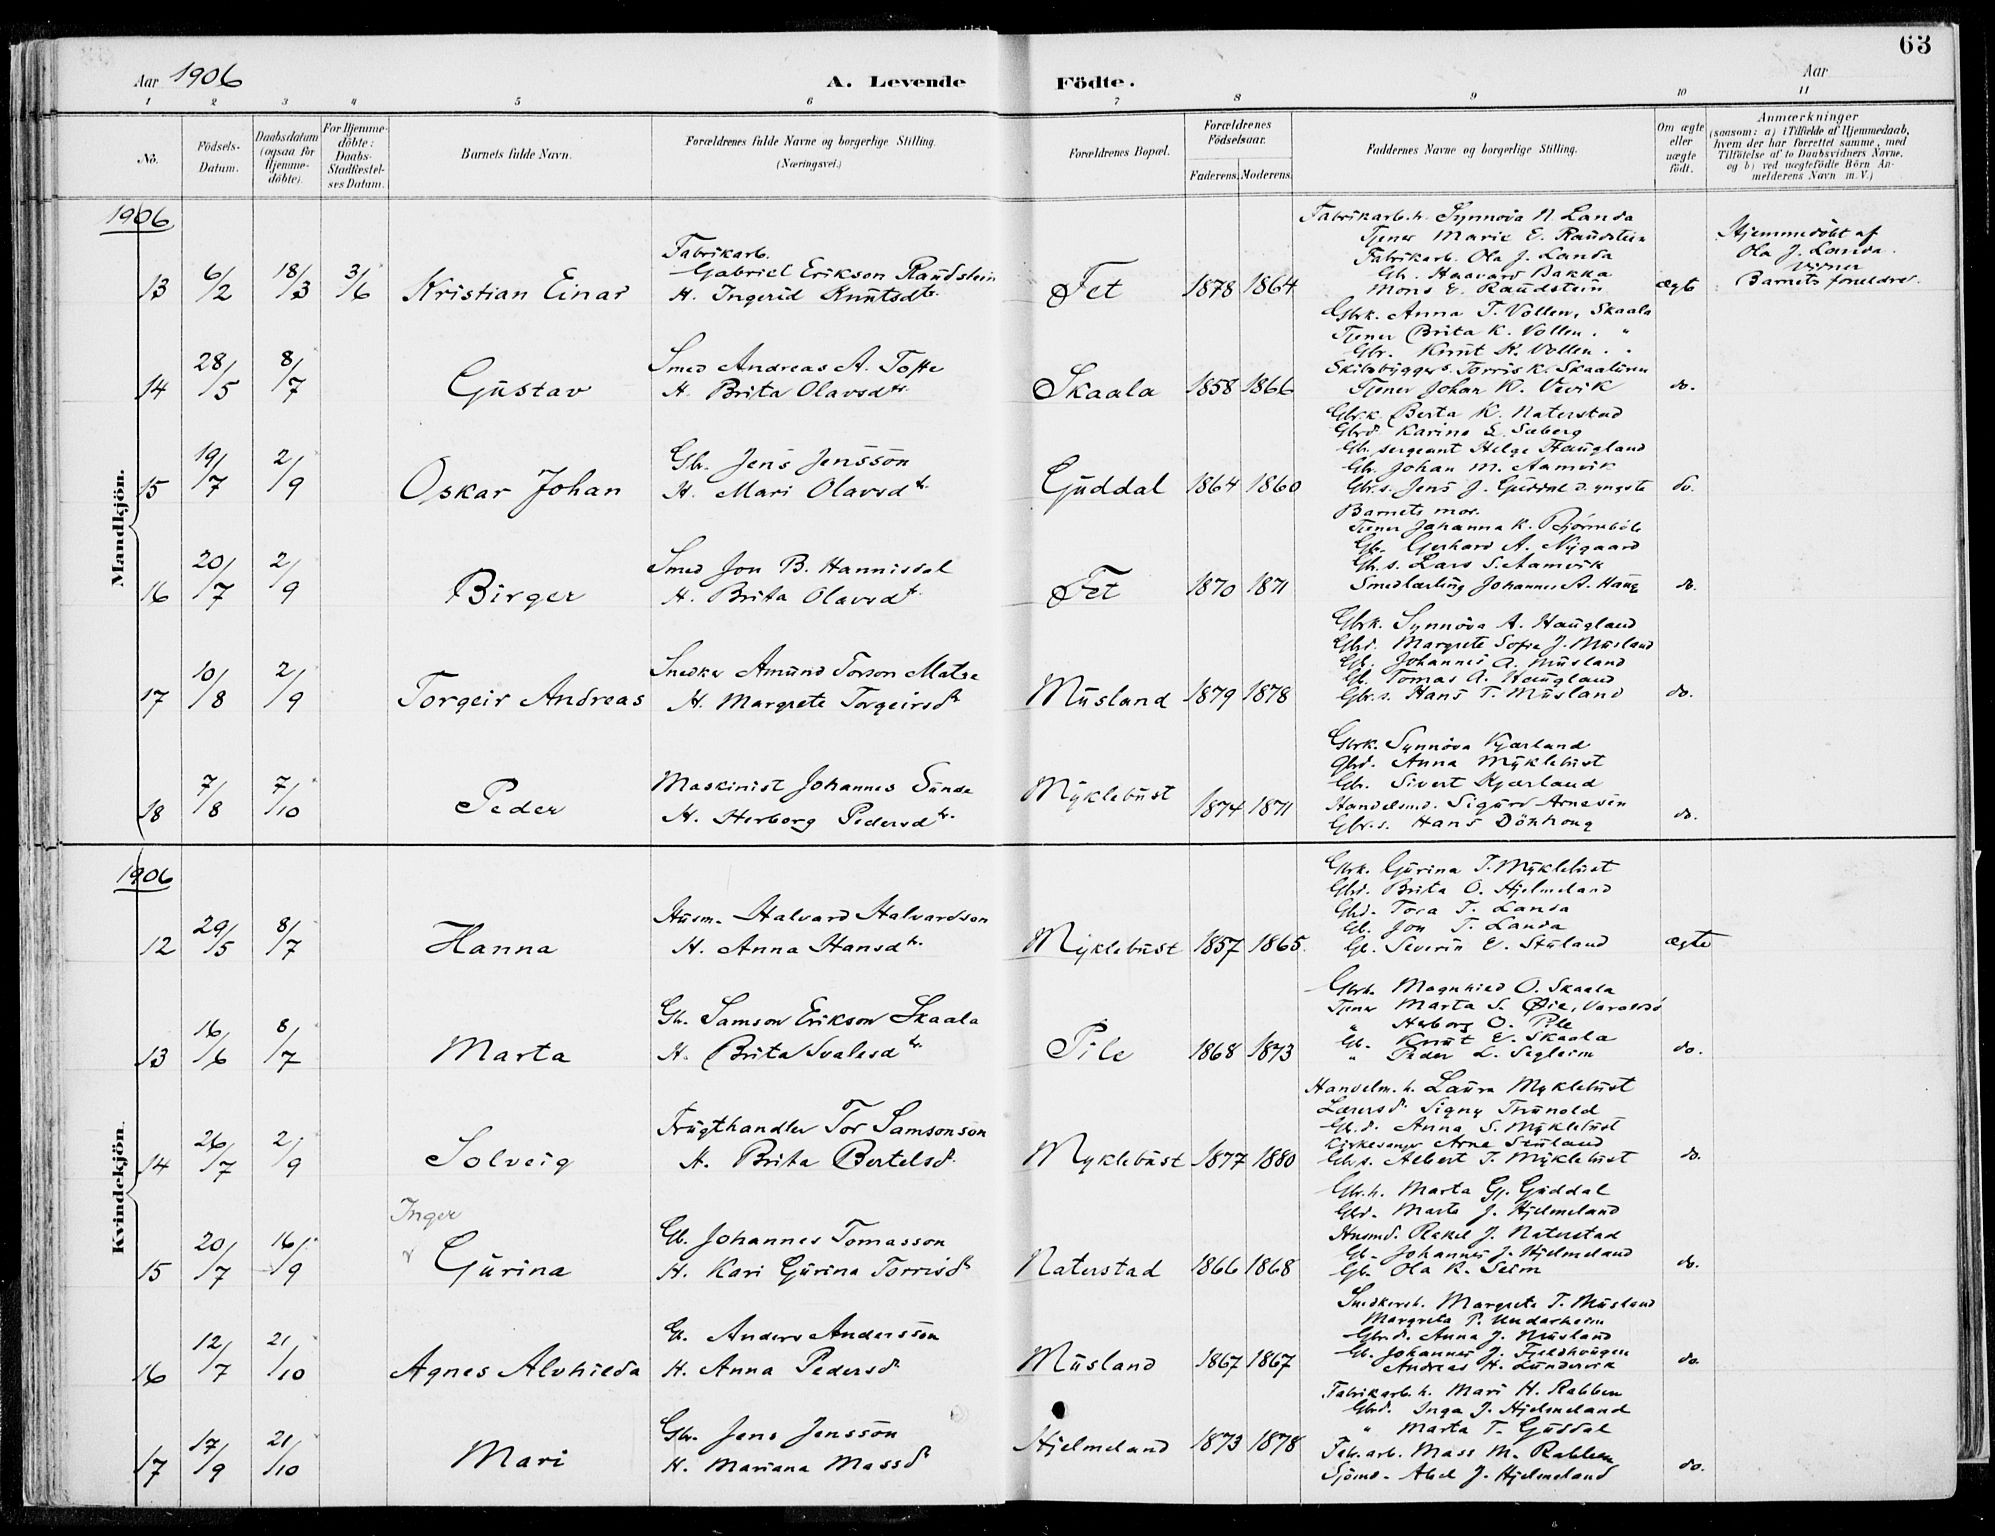 63
Aar 1906 A. Levende Födte. Aar
1 2 3 4 5 6 7 8 9 10 11
No. Födsels-Datum. Daabsdatum (ogsaa for Hjemme-döbte). For Hjemme-döbte: Daabs-Stadfæstel-ses Datum. Barnets fulde Navn. Forældrenes fulde Navne og borgerlige Stilling. (Næringsvei.) Forældrenes Bopæl. Forældrenes Födselsaar. Faderens. Moderens. Faddernes Navne og borgerlige Stilling. Om ægte eller uægte födt. Anmærkninger (saasom: a) i Tilfælde af Hjemmedaab, hvem der har forrettet samme, med Tilföielse af to Daabsvidners Navne, og b) ved uægtefödte Börn An-melderens Navn m. V.)
Mandkjön.
1906
13 6/2 18/3 3/6 Kristian Einar
Fabrikarb.
Gabriel Erikson Raudstein
H. Ingerid Knutsdtr.
Fet 1878 1864
Fabrikarb. h. Synnöva N. Landa
Tjener Marie E. Raudstein
Fabrikarb. Ola J. Landa
Gb. Haavard Bakka
Mons E. Raudstein
ægte
Hjemmedöbt af
Ola J. Landa.
Vidner
Barnets foreldre.
14 28/5 8/7 Gustav
Smed Andreas A. Tofte
H. Brita Olavsdtr.
Skaala 1858 1866
Gbrk. Anna T. Vollen, Skaala
Tjener Brita K. Vollen. "
Gbr. Knut K. Vollen. "
Skibsbyggers. Torris K. Skaalnes
Tjener Johan K. Vevik
do.
15 19/7 2/9 Oskar Johan
Gbr. Jens Jensson
H. Mari Olavsdtr.
Guddal 1864 1860
Gbr.k. Berta K. Naterstad
Gbrd. Karina L. Sæberg
Gbr. sergeant Helge Haugland
Gbr. Johan M. Aamvik
Gbr.s. Jens J. Guddal d. yngste
do.
16 20/7 2/9 Birger
Smed Jon B. Hannisdal
H. Brita Olavsdtr.
Fet 1870 1871
Barnets mor.
Tjener Johanna K. Björnebole
Gb. Gerhard A. Nygaard
Gb. s. Lars S. Aamvik
Smedlærling Johannes A. Haug
do.
17 10/8 2/9 Torgeir Andreas
Snedker Amund Torson Matre
H. Margrete Torgeirsdtr
Musland 1879 1878
Gbrk. Synnöva A. Haugland
Gbrd. Margrete Sofie J. Musland
Gb. Johannes A. Musland
Gb. Tomas A. Haugland
Gbr. s. Hans T. Musland
do.
18 7/8 7/10 Peder
Maskinist Johannes Sunde
H. Herborg Pedersdtr.
Myklebust 1874 1871
Gbrk. Synnöva Kjærland
Gbrd. Anna Myklebust
Gbr. Sivert Kjærland
Handelsmd. Sigurd Arnesen
Gbr. s. Hans Döhhong
do.
Kvindekjön.
1906
12 29/5 8/7 Hanna
Husm. Halvard Halvardson
H. Anna Hansdtr.
Myklebust 1857 1865.
Gbrk. Gurina T. Myklebust
Gbrd. Brita O. Hjelmeland
Gbrd. Tora T. Landa
Gb. Jon T. Landa
Gb. Severin E. Stuland
ægte
13 16/6 8/7 Marta
Gb. Samson Erikson Skaala
H. Brita Svalesdtr.
Pile 1868 1873
Gbrh. Magnhild O. Skaala
Tjener Marta S. Öie, Varaldsö
" Herborg O. Pile
Gb. Knut E. Skaala
" Peder L. Segleim
do.
14 26/7 2/9 Solveig
Frugthandler Tor Samsonson
H. Brita Bertelsd.
Myklebust 1877 1880
Handelm. h. Laura Myklebust
Lærersd. Signy Trunold
Gb. d. Anna S. Myklebust
Kirkesanger Arne Stuland
Gbr s. Albert T. Myklebust
do.
15 20/7 16/9 Inger
Gurina
Gb. Johannes Tomasson
H. Kari Gurina Torrisdtr
Naterstad 1866 1868
Gbr. h. Marta Gj. Guddal
Gbrd. Marta J. Hjelmeland
Husmd. Rakel J. Naterstad
Gb. Johannes J. Hjelmeland
Gb. Ola K. Seim
do.
16 12/7 21/10 Agnes Alvhilda
Gb. Anders Andersson
H. Anna Pedersdtr
Musland 1867 1867
Snedkersh. Margrete T. Musland
Margreta P. Undarheim
Gbrd. Anna J. Musland
Gb. Johannes J. Fjeldhaugen
Andreas H. Lundervik
do.
17 17/9 21/10 Mari
Gbr. Jens Jensson
H. Mariana Massdtr
Hjelmeland 1873 1878
Fabrikarb. h. Mari H. Rabben
Gbrd. Inga J. Hjelmeland
" Marta T. Guddal
Fabr. arb. Mass M. Rabben
Sjömd. Abel J. Hjelmeland
do.